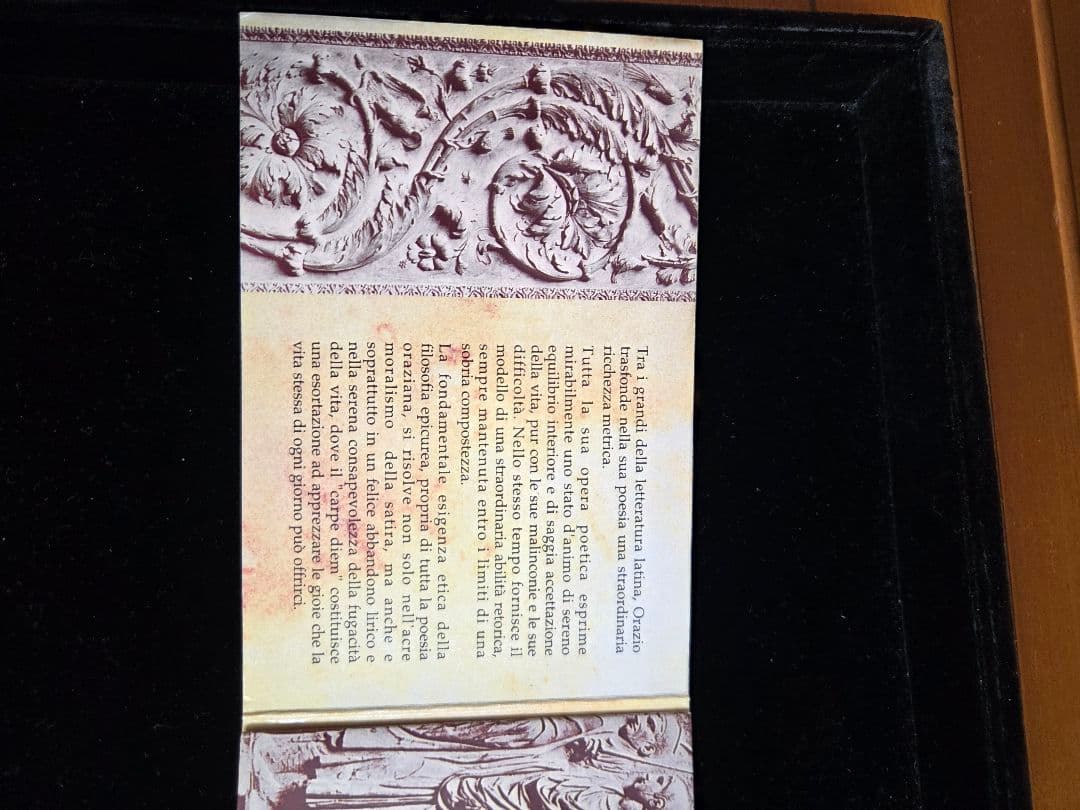 Tra i grandi della letteratura latina, Orazio
trasfonde nella sua poesia una straordinaria
ricchezza metrica.
Tutta la sua opera poetica esprime
mirabilmente uno stato d'animo di sereno
equilibrio interiore e di saggia accettazione
della vita, pur con le sue malinconie e le sue
difficoltà. Nello stesso tempo fornisce il
modello di una straordinaria abilità retorica,
sempre mantenuta entro i limiti di una
sobria compostezza.
La fondamentale esigenza etica della
filosofia epicurea, propria di tutta la poesia
oraziana, si risolve non solo nell'acre
moralismo della satira, ma anche e
soprattutto in un felice abbandono lirico e
nella serena consapevolezza della fugacità
della vita, dove il "carpe diem" costituisce
una esortazione ad apprezzare le gioie che la
vita stessa di ogni giorno può offrirci.